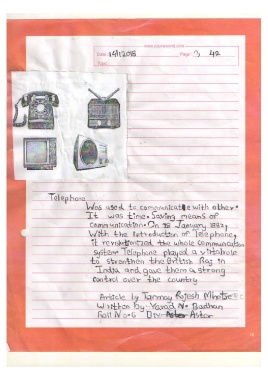 Date: 15/1/2018 Page: 3 42
Telephone
Was used to communicate with other.
It was time. Saving means of
communication. On 28 January 1882,
With the introduction of Telephone,
it revolutionized the whole communication
system Telephone played a vital role
to strenthen the British Raj in
India and gave them a strong
control over the country
Article by Tanmay Rajesh Mhatre
Written by Varad N. Badhan
Roll No:6 Div Aster